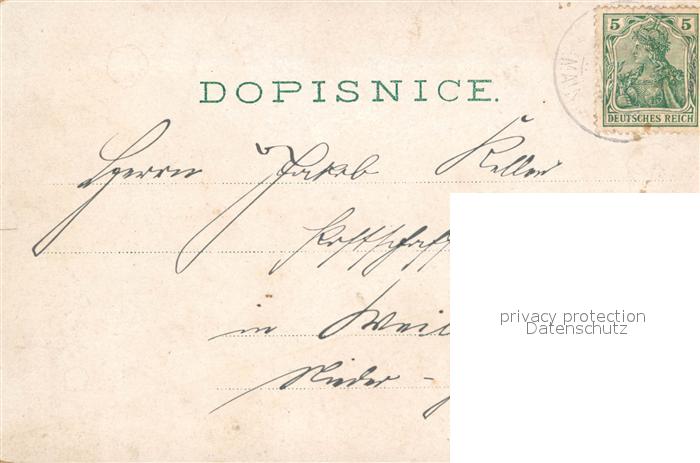 5 5
DEUTSCHES REICH
DOPISNICE.
Herrn Jakob Keller
in Weil
Nieder-
privacy protection
Datenschutz